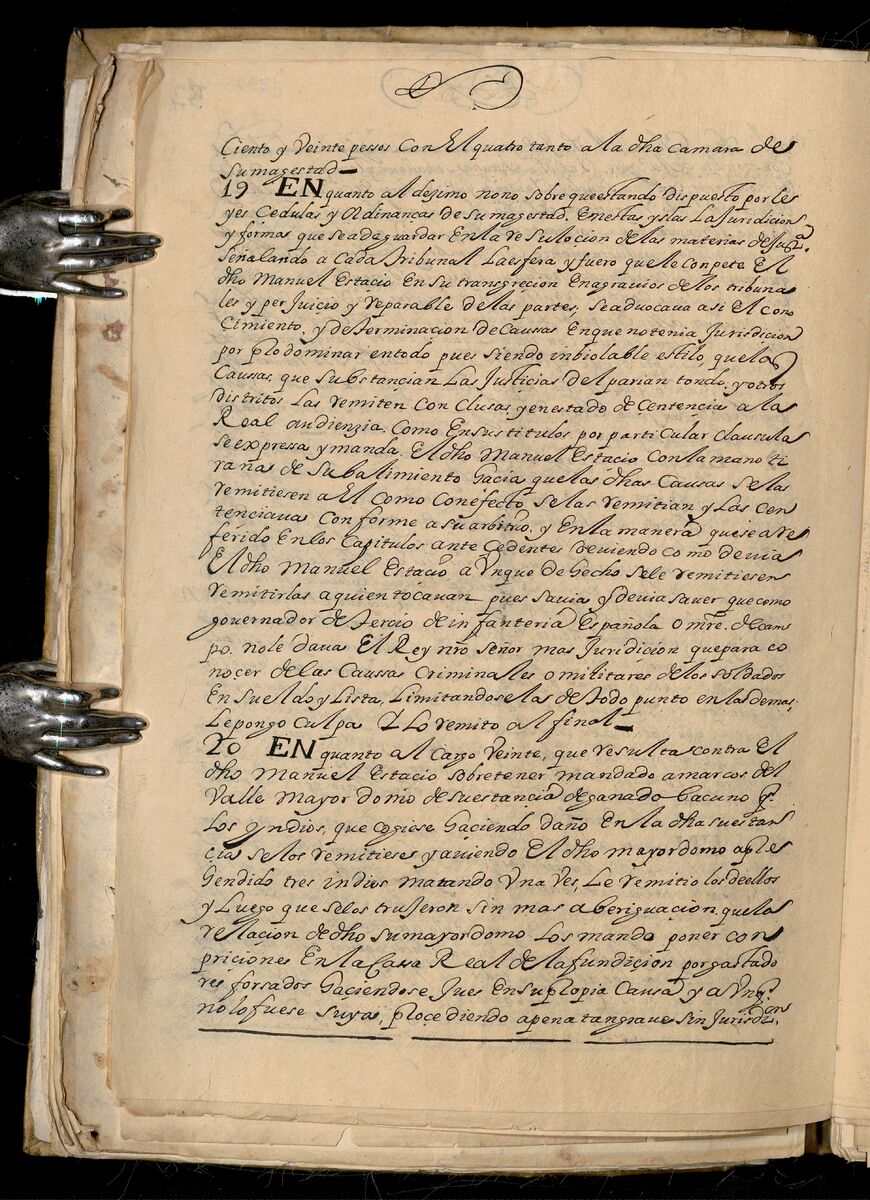 Ciento y Veinte pessos Con El quatro tanto a la dha camara de
Su magestad
19 EN quanto al dezimo nono, sobre que estando dispuesto por le
yes Cedulas y Ordinancas de Su magestad. En estas yslas La Juridicion
y formas que se a de guardar En la resulocion de las materias de Justa.
Señalando a Cada tribunal La esfera y fuero que le conpete El
dho Manuel Estacio En su transgrecion En agravios de los tribuna
les y per Juicio y reparable de las partes, se advocava a si El cono
Cimiento, y determinacion de Caussas En que no tenia Jurisdicion
por plodominar en todo, pues siendo inbiolable estilo, que las
Caussas, que substancian Las Justicias del parian tondo, y otros
distritos Las remiten Conclusas y en estado de Centencia a la
Real audienzia. Como En sus titulos por particular clausula
se expressa y manda. El dho Manuel Estacio Con la mano ti
rana de Su batimiento Gacia que las dhas Causas se las
remitiesen a El como Con efecto, se las remitian y Las Cen
tenciava Conforme a su arbitrio, y En la manera que se a re
ferido En los Capitulos ante Cedentes deviendo como devia
El dho Manuel Estacio, a Vnque de Gecho se le remitiesen
remitirlas a quien tocavan pues savia y devia saver que como
governador de tercio de infanteria Española o mre. de cam
po. no le dava El Rey nro señor mas Juridicion que para co
nocer de las Caussas Criminales o militares de los soldados
En sueldo y Lista, Limitandoselas de todo punto en las demas,
Le pongo Culpa Y Lo remito al final
20 EN quanto al Cargo Veinte, que resulta contra El
dho Manuel Estacio sobre tener mandado a marcos del
Valle Mayor domo de su estancia de ganado bacuno q.
Los yndios, que cogiese Gaciendo daño En la dha su estan
cia se los remitiese y aviendo El dho mayordomo apre
hendido tres indios matando Vna res, Le remitio los de ellos
y Luego que se los trujeron sin mas aberiguacion que la
relacion de dho su mayordomo Los mando poner con
priciones En la Casa Real de la fundicion por gastado
res forsados Gaciendose Jues En su plopia Causa y a Vnq.
no lo fuese suya, plocediendo a pena tan grave sin Jurisdicion.